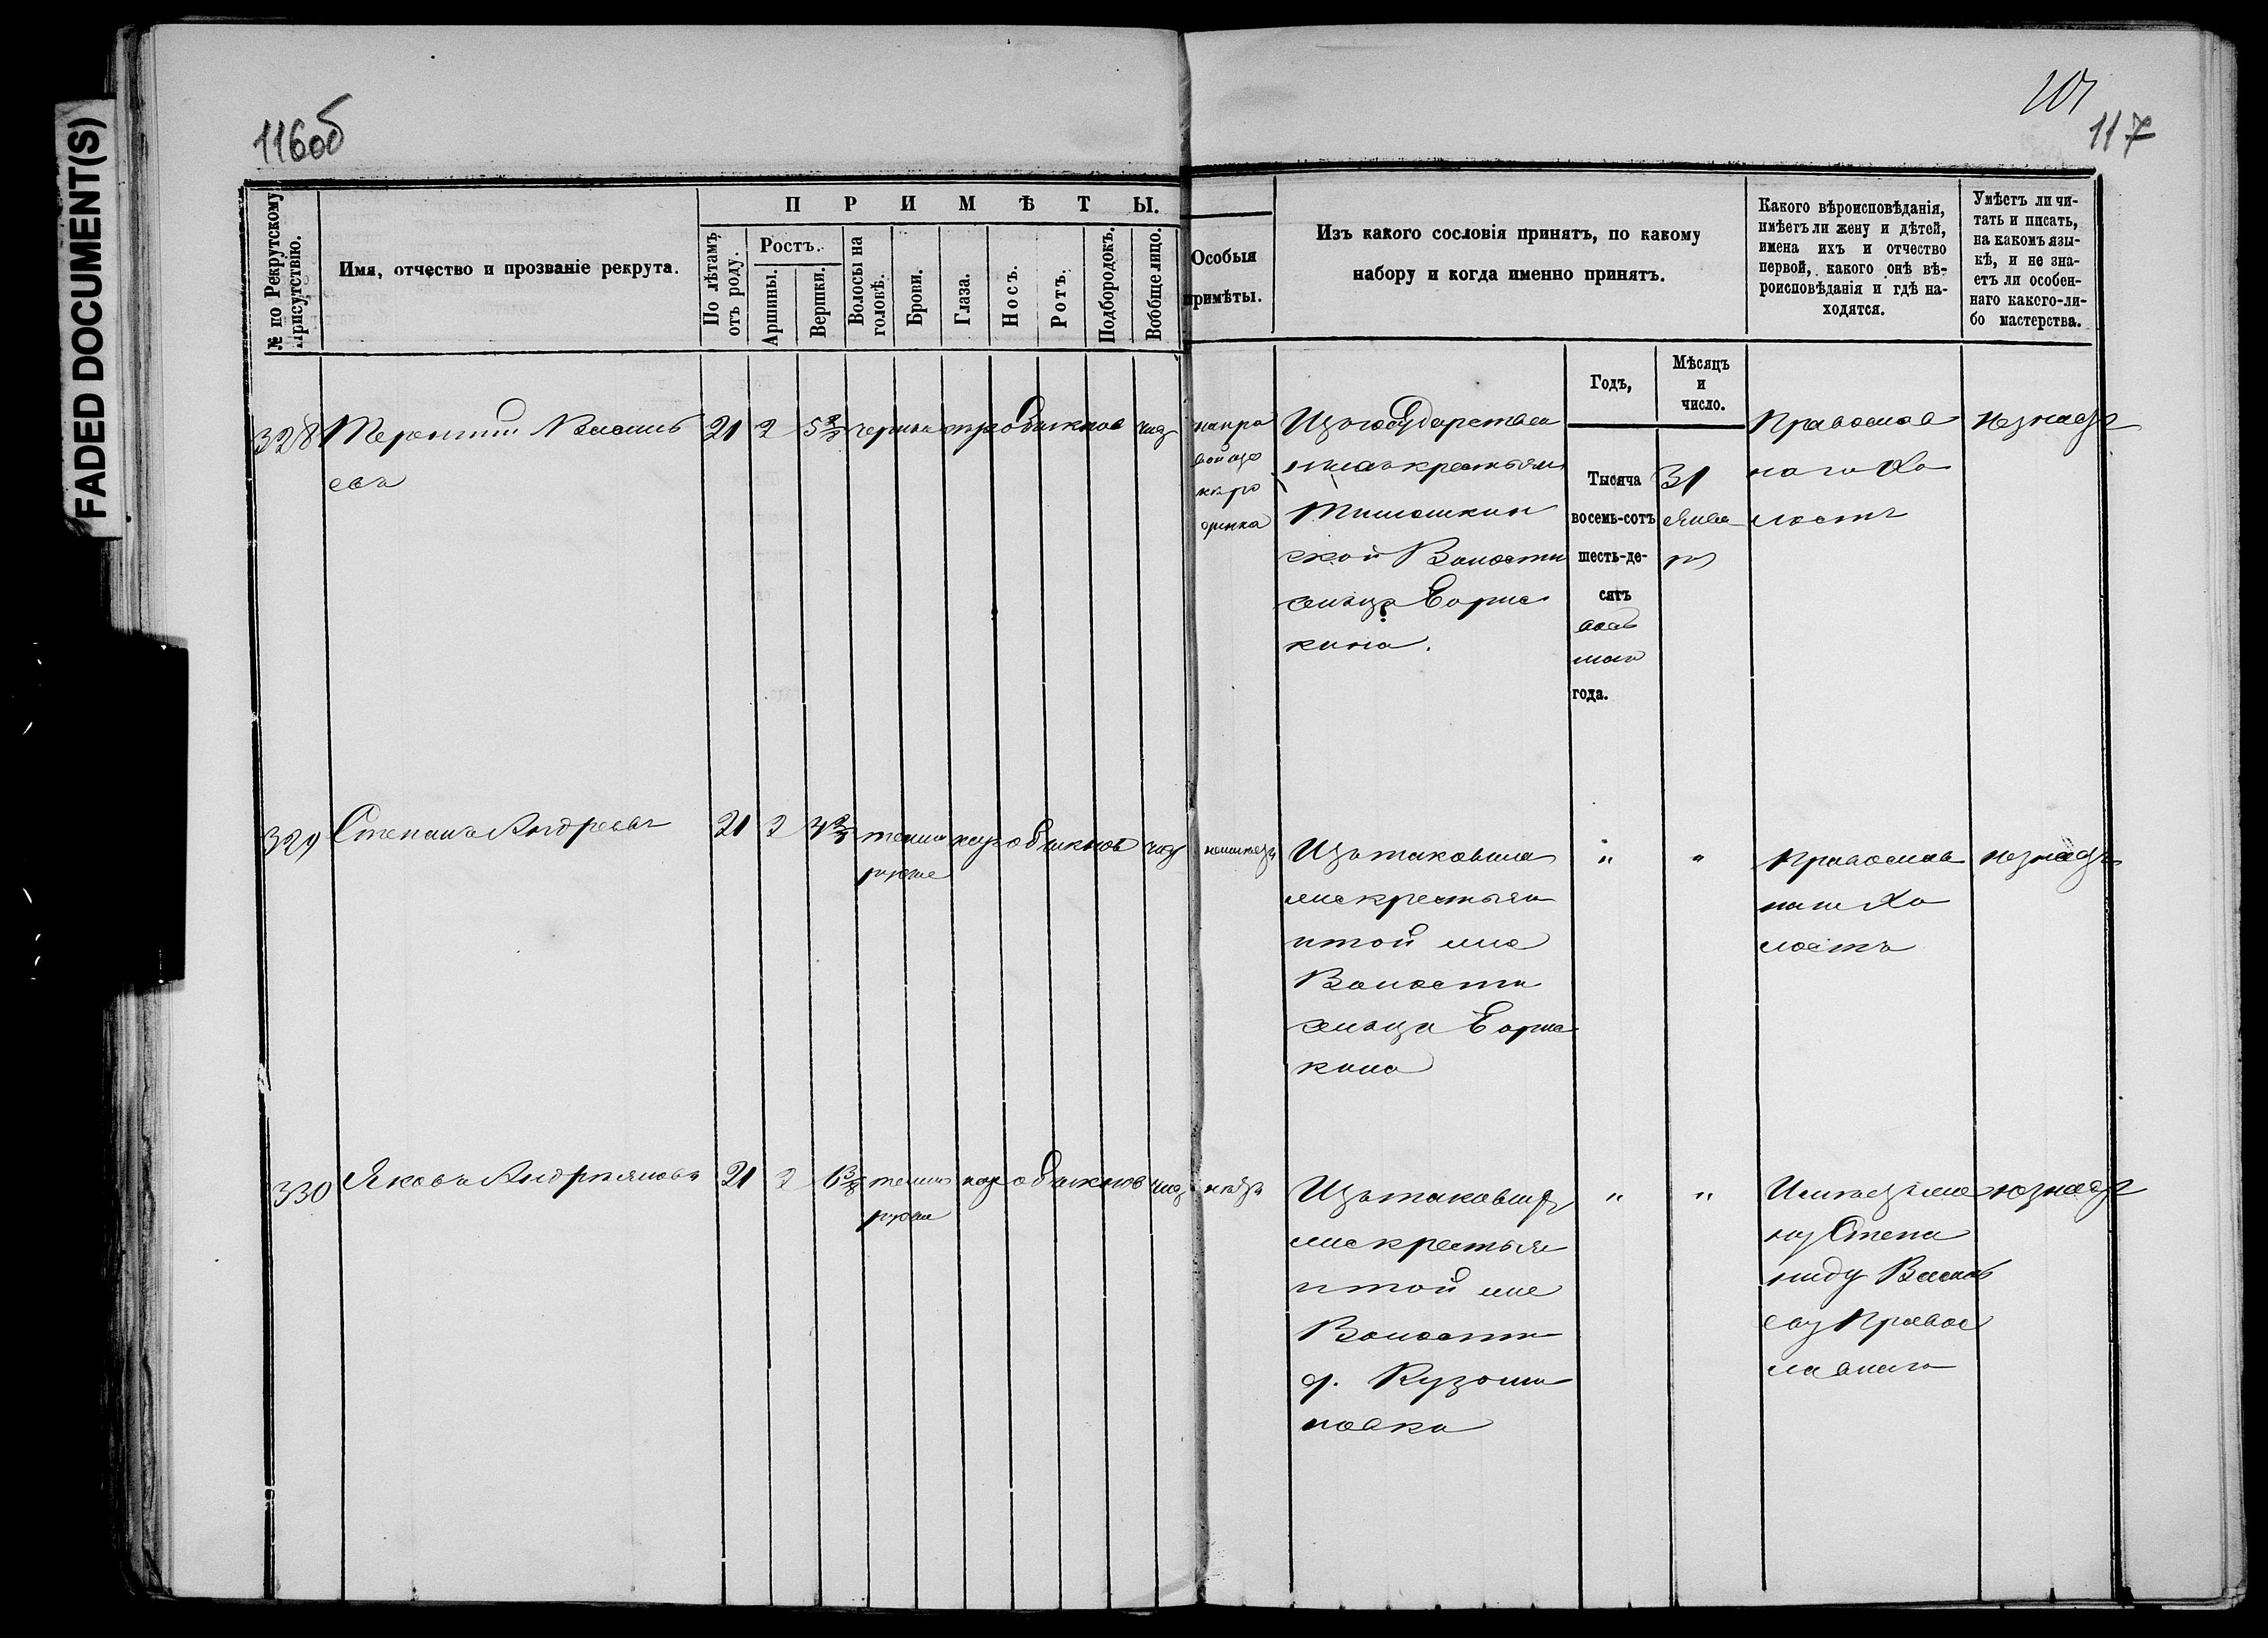 FADED DOCUMENT(S)
116об
107
117
№ по Рекрутскому Присутствію.
Имя, отчество и прозваніе рекрута.
ПРИМѢТЫ.
По лѣтамъ отъ роду.
Ростъ.
Аршины.
Вершки.
Волосы на головѣ.
Брови.
Глаза.
Носъ.
Ротъ.
Подбородокъ.
Вобще лицо.
Особыя
примѣты.
Изъ какого сословія принятъ, по какому
набору и когда именно принятъ.
Какого вѣроисповѣданія,
имѣетъ ли жену и дѣтей,
имена ихъ и отчество
первой, какого онѣ вѣ-
роисповѣданія и гдѣ на-
ходятся.
Умѣетъ ли чи-
тать и писать,
на какомъ язы-
кѣ, и не зна-
етъ ли особен-
наго какого-ли-
бо мастерства.
Годъ,
Мѣсяцъ
и
число.
328
Терентий Василь
евъ
21 2 5 черны обыкнов чис
на пра
вой ще
ке ро
динка
Изъ государствен
ныхъ крестьян
Тимошкин
ской Волости
сельца Ерма
кина.
Тысяча
восемь-сотъ
шесть-де-
сятъ
вось
маго
года.
31
Янва
ря
Православ
наго Хо
лостъ
незнаетъ
329
Степанъ Андреевъ
21 2 4 темно кар обыкнов чис
русые
неимеетъ
Изъ таковыхъ
же крестьян
и той же
Волости
сельца Ерма
кина
" "
Православ
наго Хо
лостъ
незнаетъ
330
Яковъ Андрияновъ
21 2 темно кар обыкнов чис
русые
нѣтъ
Изъ таковыхъ
же крестьян
и той же
Волости
д. Кузьми
новка
" "
Имѣетъ же
ну Степа
ниду Василь
еву Правос
лавнаго
незнаетъ